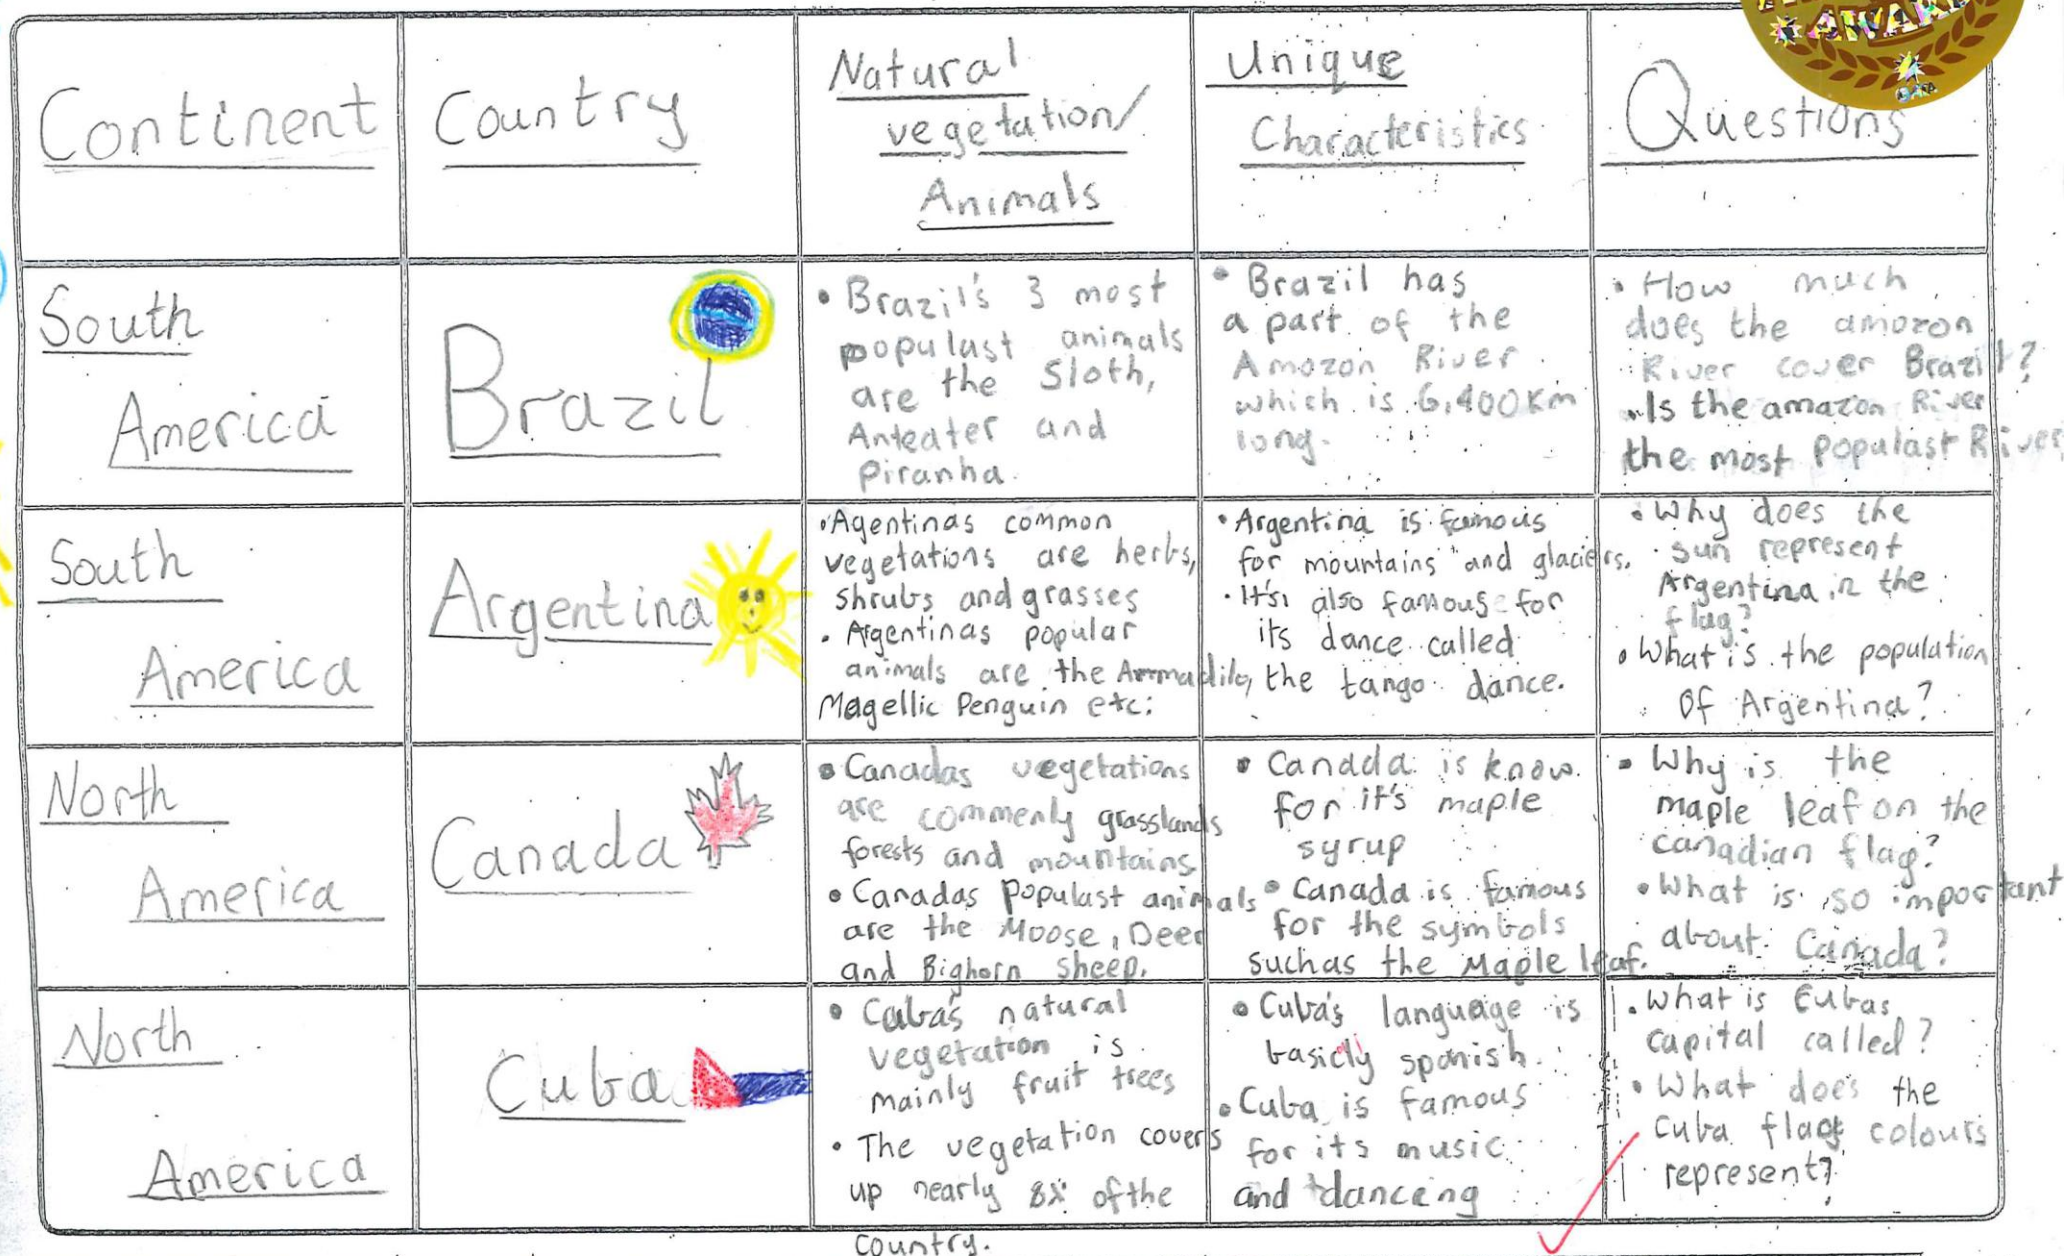 AWARD
Continent
Country
Natural
vegetation/
Animals
Unique
Characteristics
Questions
South
America
Brazil
• Brazil's 3 most
populast animals
are the Sloth,
Anteater and
Piranha.
• Brazil has
a part of the
Amozon River
which is 6,400km
long.
• How much
does the amozon
River cover Brazil?
• Is the amazon River
the most populast River
South
America
Argentina
• Agentinas common
vegetations are herbs,
shrubs and grasses
• Argentinas popular
animals are the Armadilo,
Magellic Penguin etc:
• Argentina is famous
for mountains and glaciers.
• It's also famous for
its dance called
the tango dance.
• Why does the
sun represent
Argentina in the
flag?
• What is the population
Of Argentina?
North
America
Canada
• Canadas vegetations
are commenly grasslands
forests and mountains
• Canadas Populast animals
are the Moose, Deer
and Bighorn sheep.
• Canada is know
for it's maple
syrup
• Canada is famous
for the symbols
suchas the Maple leaf.
• Why is the
maple leaf on the
canadian flag?
• What is so important
about Canada?
North
America
Cuba
• Cuba's natural
vegetation is
mainly fruit trees
• The vegetation covers
up nearly 8% of the
country.
• Cuba's language is
basicly spanish.
• Cuba is famous
for its music
and danceing
• What is Cubas
capital called?
• What does the
Cuba flag colours
represent?